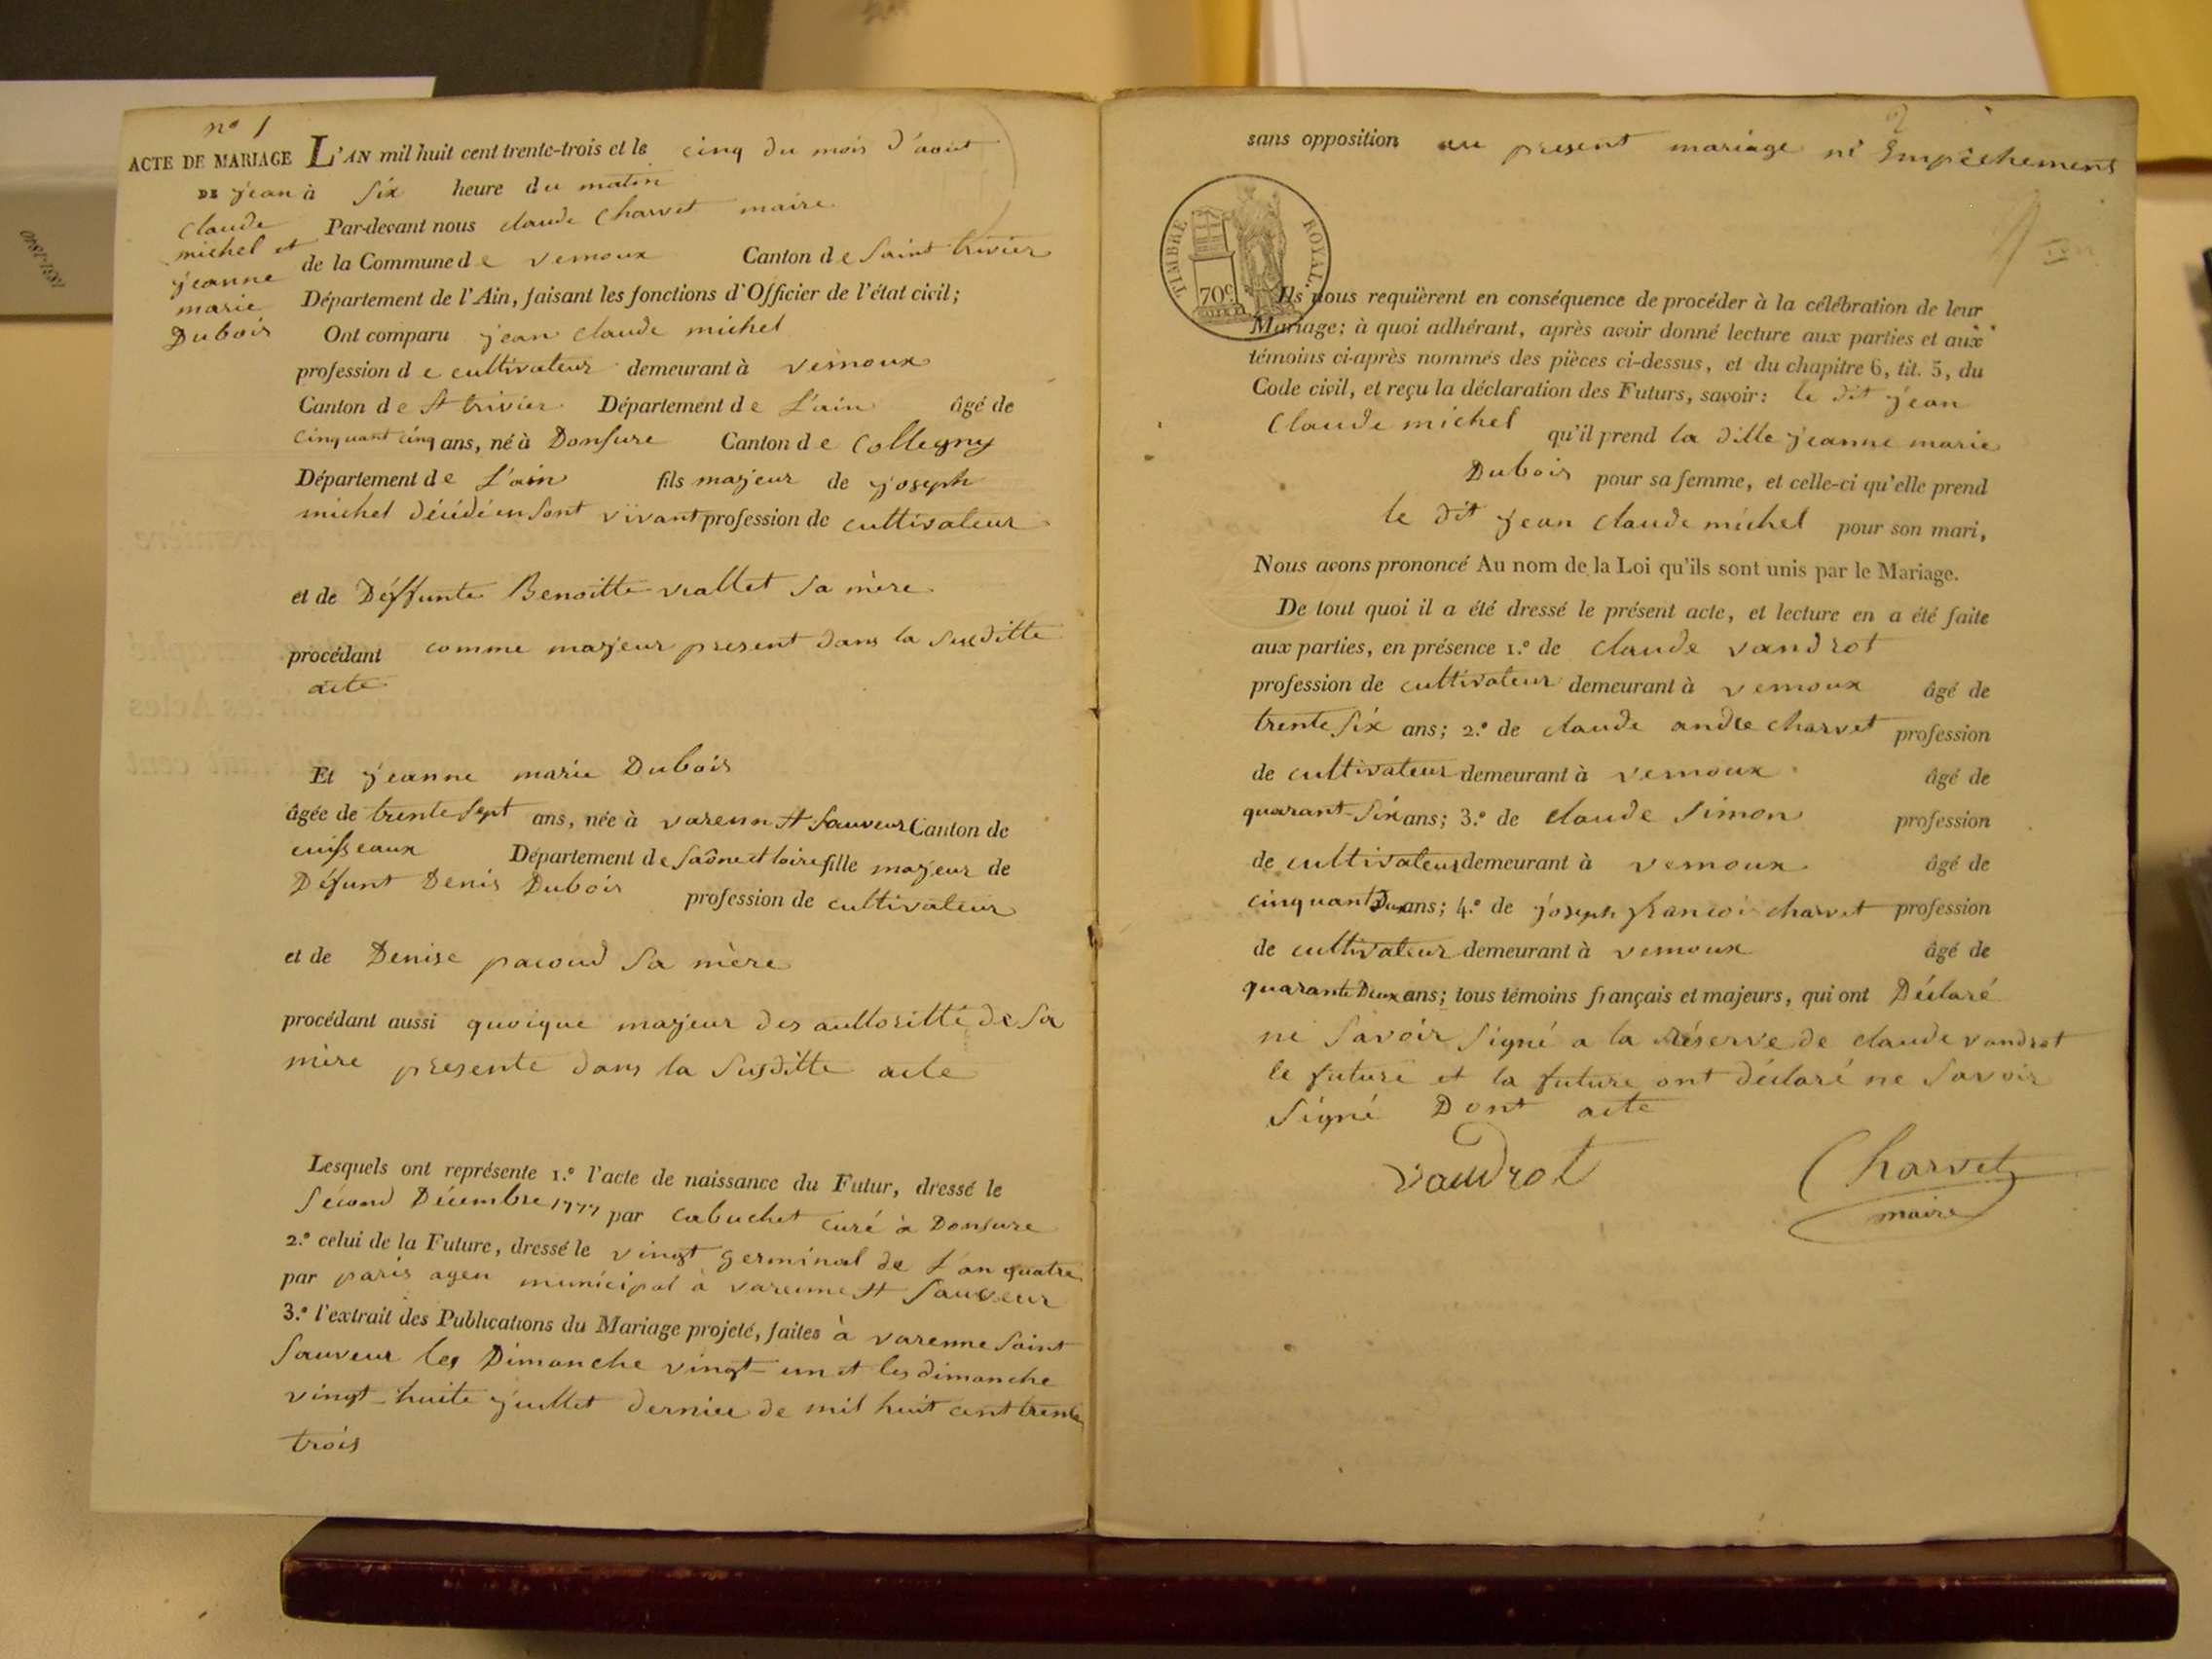 nº 1
ACTE DE MARIAGE
DE jean
claude
michel et
jeanne
marie
Dubois
L'AN mil huit cent trente-trois et le cinq du mois d'août
à six heure du matin
Par-devant nous claude Charvet maire
de la Commune de vernoux Canton de Saint trivier
Département de l'Ain, faisant les fonctions d'Officier de l'état civil;
Ont comparu jean claude michel
profession de cultivateur demeurant à vernoux
Canton de St trivier Département de L'ain âgé de
cinquant cinq ans, né à Donsure Canton de Collegny
Département de L'ain fils majeur de joseph
michel décédé en sont vivant profession de cultivateur
et de Déffunte Benoitte viallet sa mère
procédant comme majeur present dans la susditte
acte
Et jeanne marie Dubois
âgée de trente sept ans, née à varenn St Sauveur Canton de
cuisseaux Département de Saône et loire fille majeur de
Défunt Denis Dubois profession de cultivateur
et de Denise pacoud sa mère
procédant aussi quoique majeur des auttoritté de sa
mère presente dans la susditte acte
Lesquels ont représente 1.º l'acte de naissance du Futur, dressé le
Second Décembre 1777 par cabuchet curé à Donsure
2.º celui de la Future, dressé le vingt germinal de L'an quatre
par paris agen municipal à varenne St Sauveur
3.º l'extrait des Publications du Mariage projeté, faites à varenne Saint
Sauveur les Dimanche vingt-un et les dimanche
vingt-huite juillet dernier de mil huit cent trente
trois
2
sans opposition au present mariage ni Empêchement
TIMBRE ROYAL.
70c
Ils nous requièrent en conséquence de procéder à la célébration de leur
Mariage; à quoi adhérant, après avoir donné lecture aux parties et aux
témoins ci-après nommés des pièces ci-dessus, et du chapitre 6, tit. 5, du
Code civil, et reçu la déclaration des Futurs, savoir: le dit jean
Claude michel qu'il prend la ditte jeanne marie
Dubois pour sa femme, et celle-ci qu'elle prend
le dit jean claude michel pour son mari,
Nous avons prononcé Au nom de la Loi qu'ils sont unis par le Mariage.
De tout quoi il a été dressé le présent acte, et lecture en a été faite
aux parties, en présence 1.º de claude vandrot
profession de cultivateur demeurant à vernoux âgé de
trente six ans; 2.º de claude andre charvet profession
de cultivateur demeurant à vernoux âgé de
quarant-six ans; 3.º de claude Simon profession
de cultivateur demeurant à vernoux âgé de
cinquant Dux ans; 4.º de joseph francoi charvet profession
de cultivateur demeurant à vernoux âgé de
quarante Deux ans; tous témoins français et majeurs, qui ont Déclaré
ne savoir signé a la Réserve de claude vandrot
le future et la future ont déclaré ne savoir
signé Dont acte
vaudrot
Charvet
maire